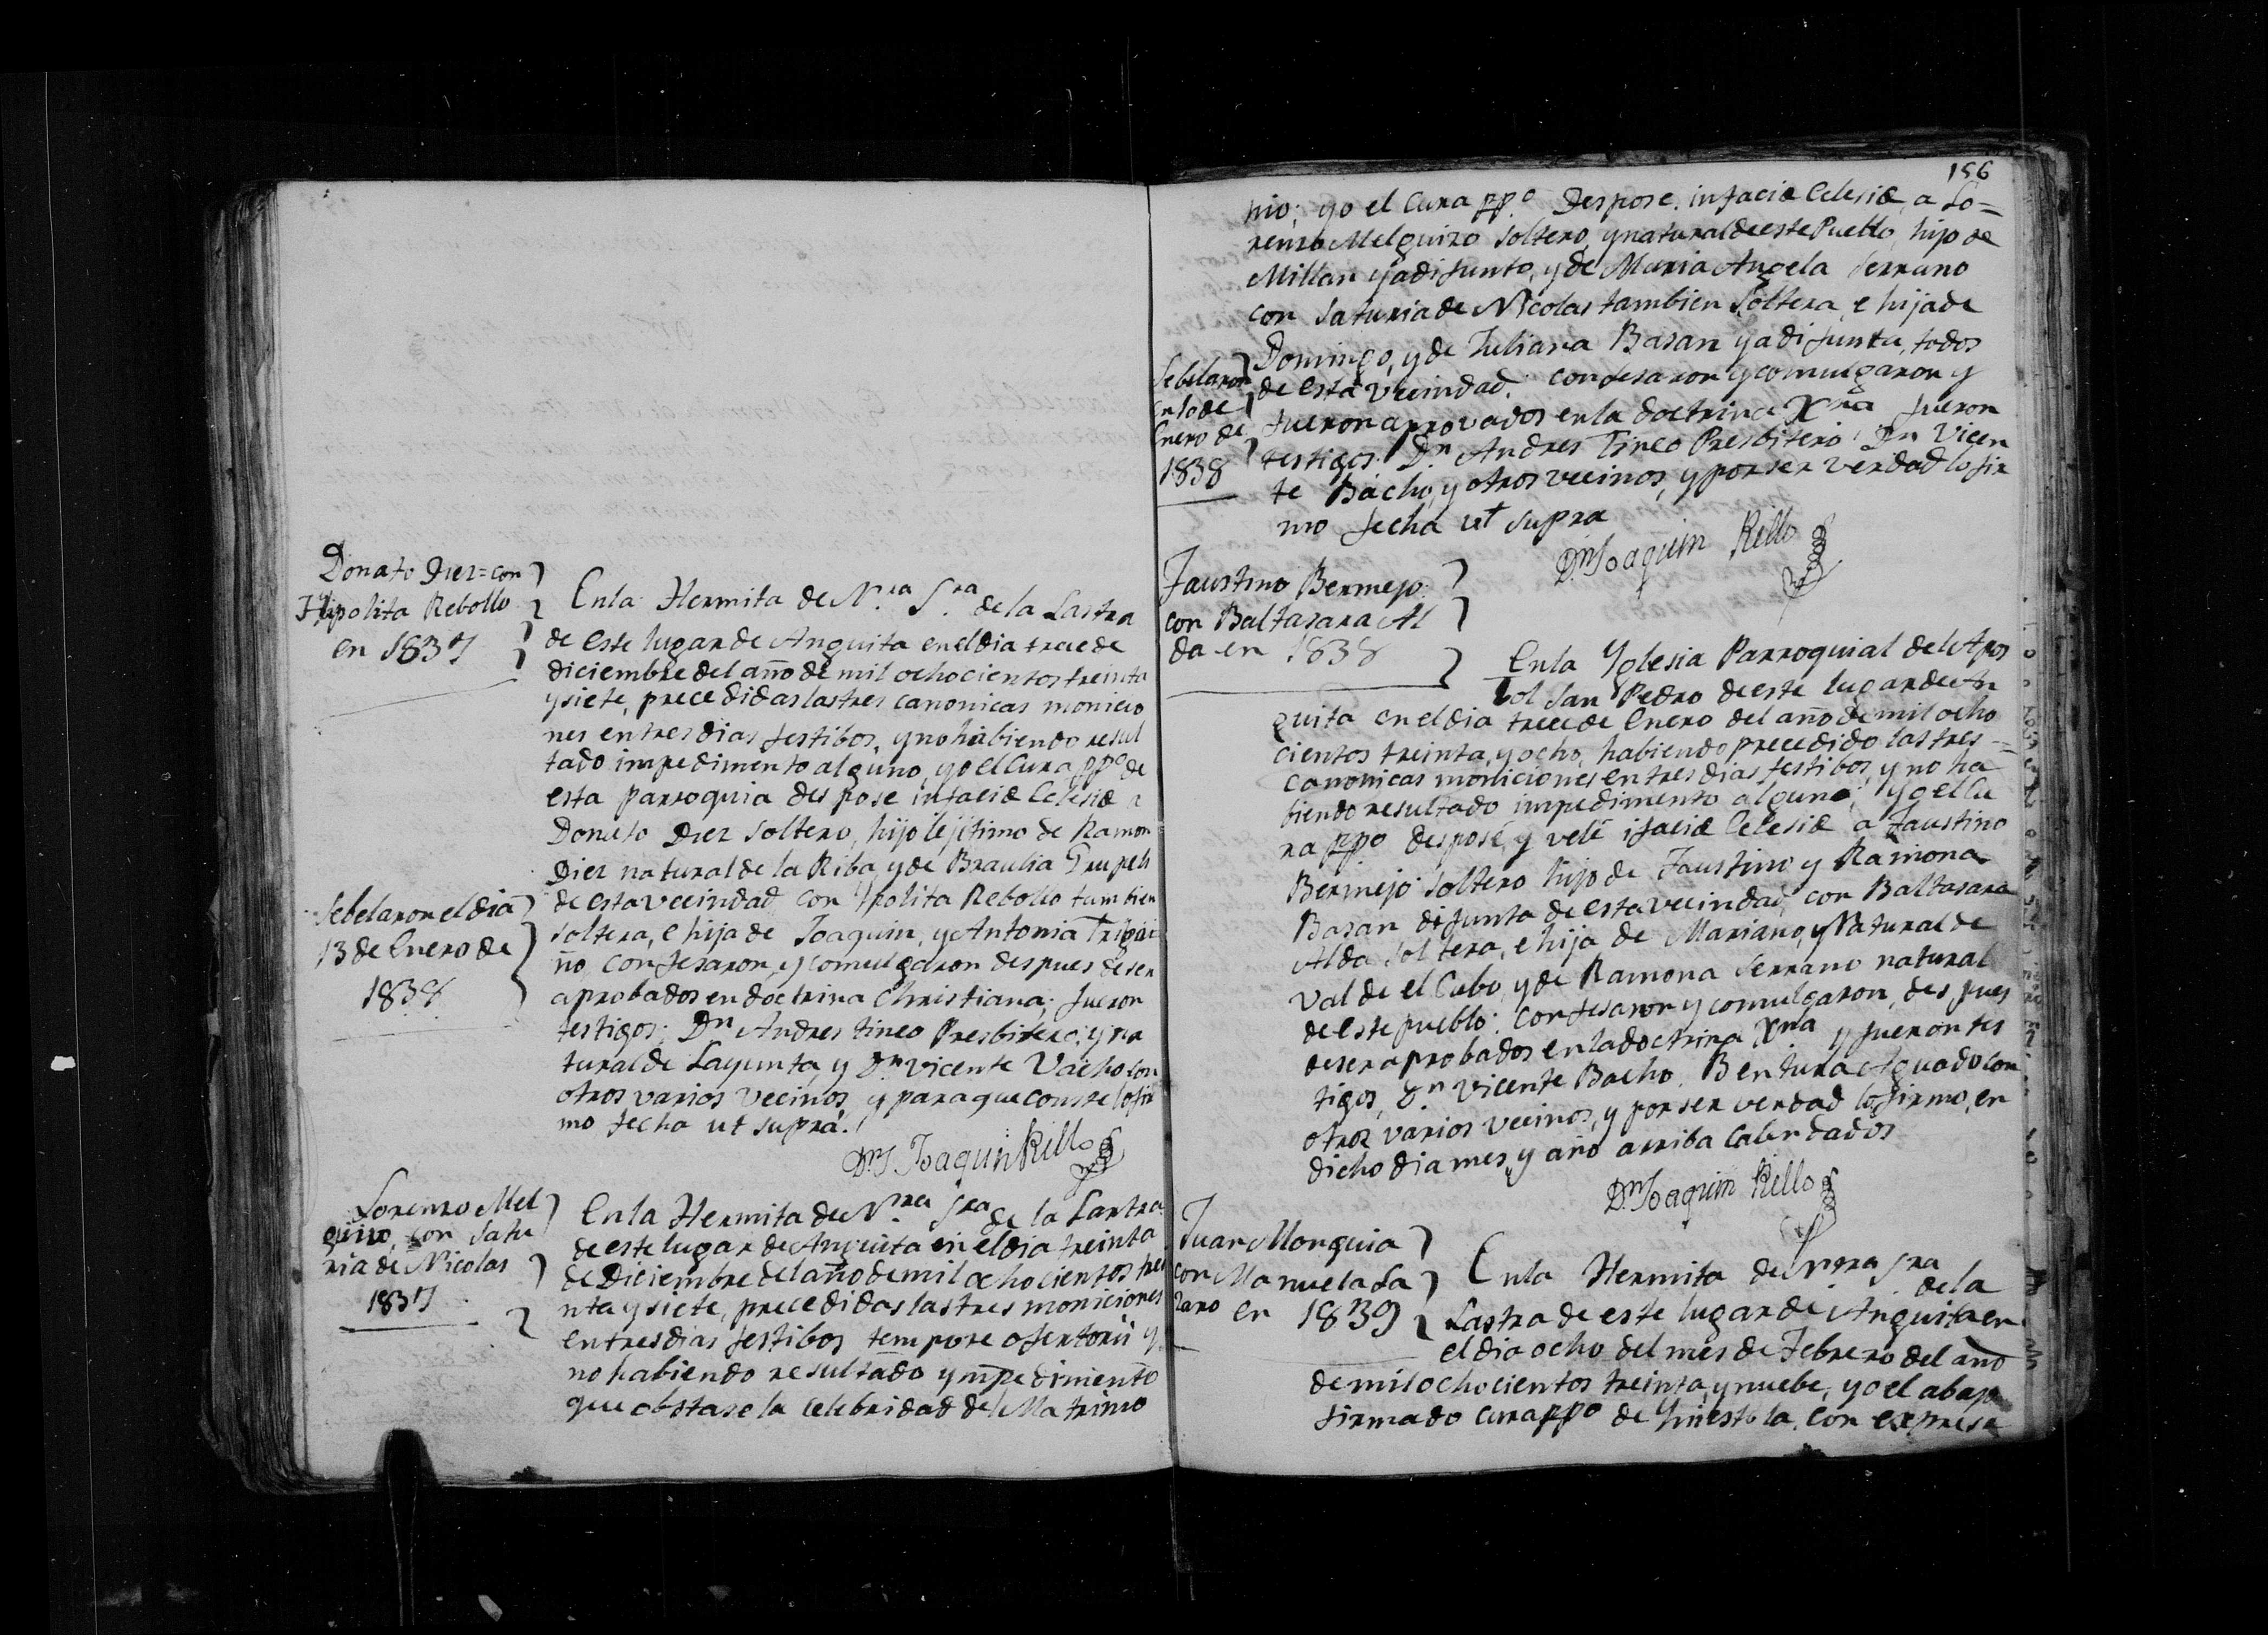 Donato Diez=con
Hipolita Rebollo
en 1837
En la Hermita de N.ra S.ra de la Lastra
de este lugar de Anguita en el dia trece de
diciembre del año de mil ochocientos treinta
y siete, precedidas las tres canonicas monicio
nes en tres dias festibos, y no habiendo resul
tado impedimento alguno, yo el Cura ppº de
esta parroquia despose infaciæ Eclesiæ a
Donato Diez soltero, hijo lejitimo de Ramon
Diez natural de la Riba, y de Braulia
de esta vecindad con Ypolita Rebollo tambien
soltera, e hija de Joaquin, y Antonia
ño confesaron, y comulgaron despues de ser
aprobados en doctrina Christiana; fueron
testigos: Dn Andres tineo Presbitero, y na
tural de Layunta, y Dn Vicente Vacho con
otros varios vecinos, y para que conste lo fir
mo fecha ut supra.
Dn Joaquin Rillo
Sebelaron el dia
13 de Enero de
1838
Lorenzo Mel
guizo, con Satu
ria de Nicolas
1837
En la Hermita de N.ra Sra de la Lastra
de este lugar de Anguita en el dia treinta
de Diciembre del año de mil ochocientos trei
nta y siete, precedidas las tres moniciones
en tres dias festibos tempore ofertorii y
no habiendo resultado ympedimento
que obstase la celebridad del Matrimo
156
nio; yo el Cura ppº Despose. infaciæ Eclesiæ, a Lo=
renzo Melguizo soltero, y natural de este Pueblo, hijo de
Millan ya difunto, y de Maria Angela Serrano
con Saturia de Nicolas tambien Soltera, e hija de
Domingo, y de Juliana Basan ya difunta, todos
de esta vecindad. confesaron y comulgaron y
fueron aprovados en la doctrina Xna fueron
testigos. Dn Andres Tineo Presbitero: Dn Vicen
te Bacho, y otros vecinos, y por ser verdad lo fir
mo fecha ut supra
Dn Joaquin Rillo
Sebelaron
en 10 de
Enero de
1838
Faustino Bermejo
con Baltasara Al
da en 1838
En la Yglesia Parroquial del Apos
tol San Pedro de este lugar de An
guita en el dia trece de Enero del año de mil ocho
cientos treinta, y ocho, habiendo precedido las tres =
canonicas moniciones en tres dias festibos, y no ha
biendo resultado impedimento alguno; Yo el Cu
ra ppº desposé, y velé ifaciæ Eclesiæ a Faustino
Bermejo soltero hijo de Faustino y Ramona
Basan difunta de esta vecindad, con Baltasara
Alda soltera, e hija de Mariano, y Natural de
Val de el Cubo, y de Ramona Serrano natural
de este pueblo: confesaron y comulgaron, despues
de ser aprobados en la doctrina Xna y fueron tes
tigos, Dn Vicente Bacho. Bentura Aguado con
otros varios vecinos, y por ser verdad lo firmo, en
dicho dia mes, y año arriba calendados
Dn Joaquin Rillo
Juan Monguia
con Manuela La
zaro en 1839
En la Hermita de Nra Sra de la
Lastra de este lugar de Anguita en
el dia ocho del mes de Febrero del año
de mil ochocientos treinta, y nuebe, yo el abajo
firmado cura ppº de Yniestola, con expresa